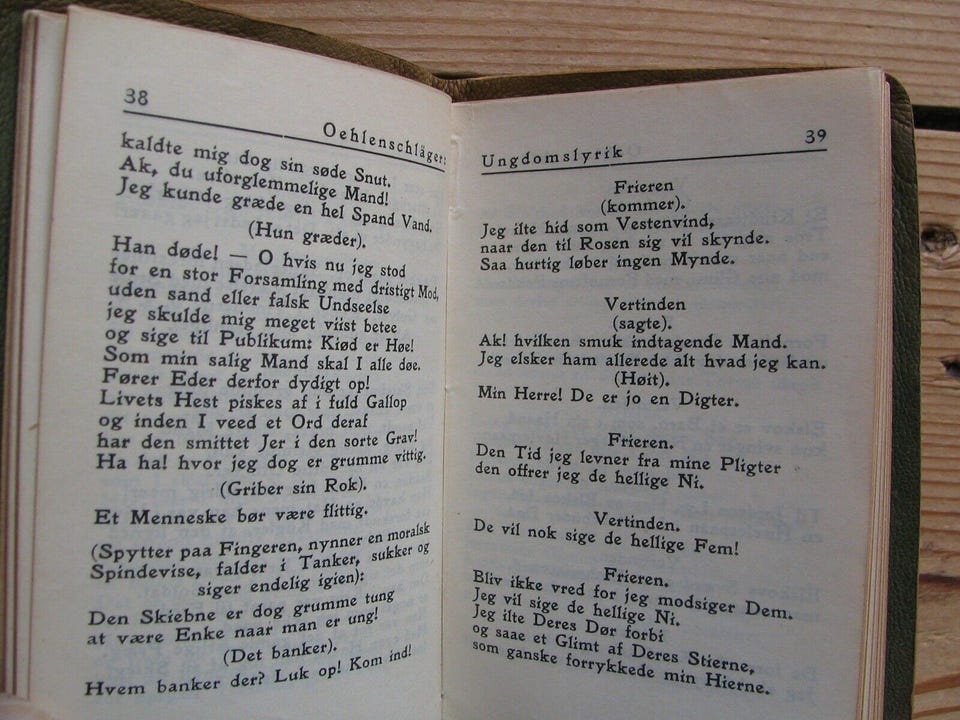 38
Oehlenschläger:
kaldte mig dog sin søde Snut.
Ak, du uforglemmelige Mand!
Jeg kunde græde en hel Spand Vand.
(Hun græder).
Han døde! — O hvis nu jeg stod
for en stor Forsamling med dristigt Mod,
uden sand eller falsk Undseelse
jeg skulde mig meget viist betee
og sige til Publikum: Kiød er Høe!
Som min salig Mand skal I alle døe.
Fører Eder derfor dydigt op!
Livets Hest piskes af i fuld Gallop
og inden I veed et Ord deraf
har den smittet Jer i den sorte Grav!
Ha ha! hvor jeg dog er grumme vittig.
(Griber sin Rok).
Et Menneske bør være flittig.
(Spytter paa Fingeren, nynner en moralsk
Spindevise, falder i Tanker, sukker og
siger endelig igien):
Den Skiebne er dog grumme tung
at være Enke naar man er ung!
(Det banker).
Hvem banker der? Luk op! Kom ind!
Ungdomslyrik
39
Frieren
(kommer).
Jeg ilte hid som Vestenvind,
naar den til Rosen sig vil skynde.
Saa hurtig løber ingen Mynde.
Vertinden
(sagte).
Ak! hvilken smuk indtagende Mand.
Jeg elsker ham allerede alt hvad jeg kan.
(Høit).
Min Herre! De er jo en Digter.
Frieren.
Den Tid jeg levner fra mine Pligter
den offrer jeg de hellige Ni.
Vertinden.
De vil nok sige de hellige Fem!
Frieren.
Bliv ikke vred for jeg modsiger Dem.
Jeg vil sige de hellige Ni.
Jeg ilte Deres Dør forbi
og saae et Glimt af Deres Stierne,
som ganske forrykkede min Hierne.